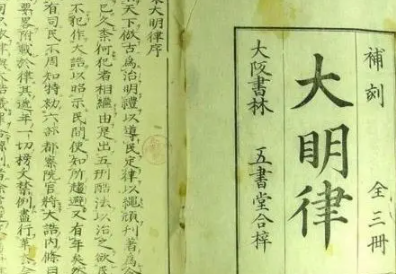 補刻 全三冊
大明律
大阪書林 五書堂合梓
大明律序
天下倣古為治明禮以導民定律以繩頑刊著為令
已久奈何犯者相繼由是出五刑酷法以治之欲民
不犯作大誥以昭示民間使知所趨避又有年矣然
有司民不周知特勅六部都察院官將大誥內條目
要畧附載於律其近年一切榜文禁例盡行革去
以依律與大誥議罪